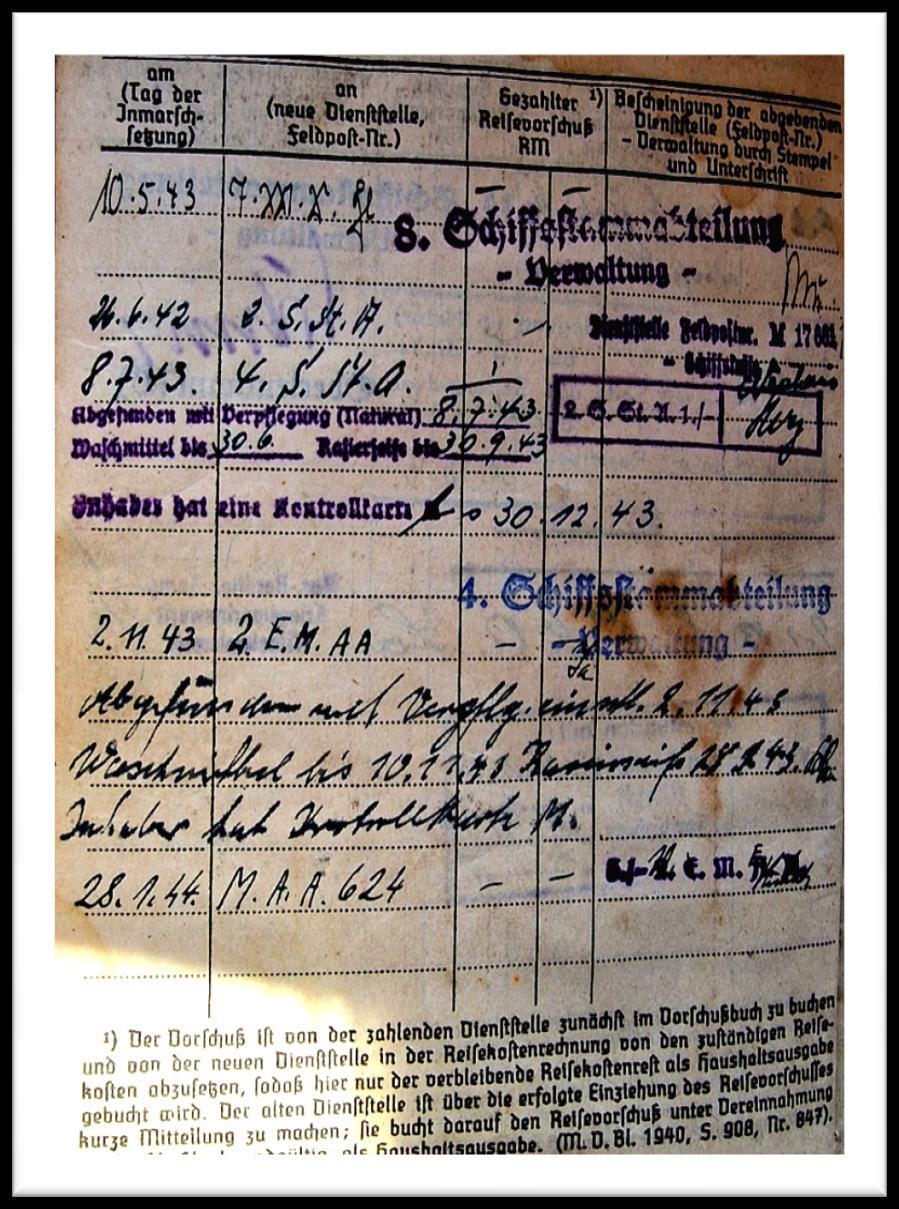 am
(Tag der
Inmarsch-
setzung)
an
(neue Dienststelle,
Feldpost-Nr.)
Gezahlter ¹)
Reisevorschuß
RM
Bescheinigung der abgebenden
Dienststelle (Feldpost-Nr.)
- Verwaltung durch Stempel
und Unterschrift
10.5.43
8. Schiffsstammabteilung
- Verwaltung -
26.6.42 2. S. St. A.
Dienststelle Feldpostnr. M
8.7.43. 4. S. St. A.
Abgefunden mit Verpflegung (Natural) 8.7.43
2. S. St. A. 1/-
Waschmittel bis 30.6. Rasierseife bis 30.9.43
Inhaber hat eine Kontrollkarte 30.12.43.
4. Schiffsstammabteilung
2.11.43 2. E. M. A A - - Verwaltung -
Abgefunden mit Verpflg. 2.11.43
Waschmittel bis 10.11.43
Inhaber hat Kontrollkarte M.
28.1.44. M. A. A. 624 - - E. M.
¹) Der Vorschuß ist von der zahlenden Dienststelle zunächst im Vorschußbuch zu buchen
und von der neuen Dienststelle in der Reisekostenrechnung von den zuständigen Reise-
kosten abzusetzen, sodaß hier nur der verbleibende Reisekostenrest als Haushaltsausgabe
gebucht wird. Der alten Dienststelle ist über die erfolgte Einziehung des Reisevorschusses
kurze Mitteilung zu machen; sie bucht darauf den Reisevorschuß unter Vereinnahmung
als Haushaltsausgabe. (M. D. Bl. 1940, S. 908, Nr. 847).